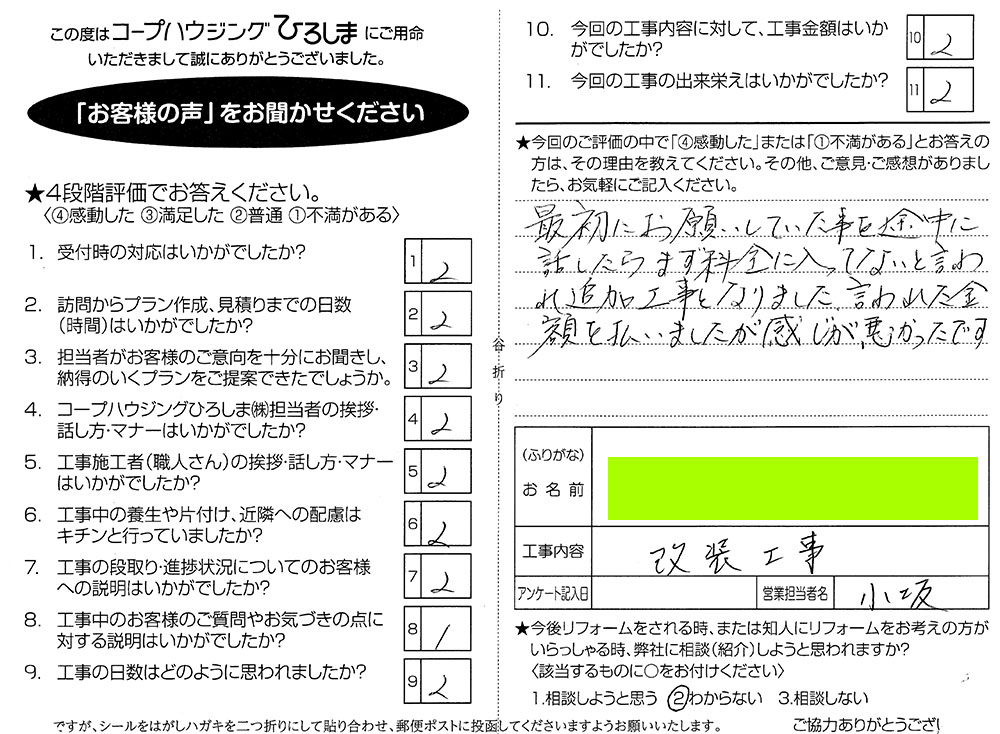 この度はコープハウジングひろしまにご用命
いただきまして誠にありがとうございました。
「お客様の声」をお聞かせください
★4段階評価でお答えください。
〈④感動した ③満足した ②普通 ①不満がある〉
1. 受付時の対応はいかがでしたか?
1 2
2. 訪問からプラン作成、見積りまでの日数
（時間）はいかがでしたか?
2 2
3. 担当者がお客様のご意向を十分にお聞きし、
納得のいくプランをご提案できたでしょうか。
3 2
4. コープハウジングひろしま㈱担当者の挨拶・
話し方・マナーはいかがでしたか?
4 2
5. 工事施工者（職人さん）の挨拶・話し方・マナー
はいかがでしたか?
5 2
6. 工事中の養生や片付け、近隣への配慮は
キチンと行っていましたか?
6 2
7. 工事の段取り・進捗状況についてのお客様
への説明はいかがでしたか?
7 2
8. 工事中のお客様のご質問やお気づきの点に
対する説明はいかがでしたか?
8 1
9. 工事の日数はどのように思われましたか?
9 2
谷折り
10. 今回の工事内容に対して、工事金額はいか
がでしたか?
10 2
11. 今回の工事の出来栄えはいかがでしたか?
11 2
★今回のご評価の中で「④感動した」または「①不満がある」とお答えの
方は、その理由を教えてください。その他、ご意見・ご感想がありまし
たら、お気軽にご記入ください。
最初にお願いしていた事を途中に
話したらまず料金に入ってないと言わ
れ追加工事となりました 言われた金
額を払いましたが感じが悪かったです
（ふりがな）
お名前
工事内容 改装工事
アンケート記入日 営業担当者名 小坂
★今後リフォームをされる時、または知人にリフォームをお考えの方が
いらっしゃる時、弊社に相談（紹介）しようと思われますか?
〈該当するものに○をお付けください〉
1.相談しようと思う ②わからない 3.相談しない
ですが、シールをはがしハガキを二つ折りにして貼り合わせ、郵便ポストに投函してくださいますようお願いいたします。
ご協力ありがとうござ